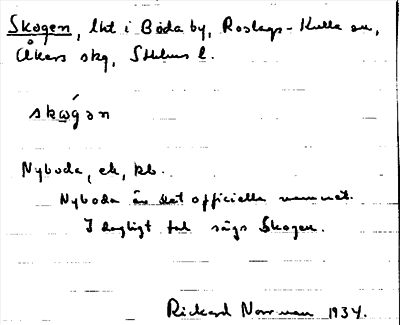 Skogen, lht i Boda by, Roslags-Kulla sn,
Åkers skg, Sthlms l.
skωǵən
Nyboda, ek, kb.
Nyboda är det officiella namnet.
I dagligt tal sägs Skogen.
Rickard Norrman 1934.